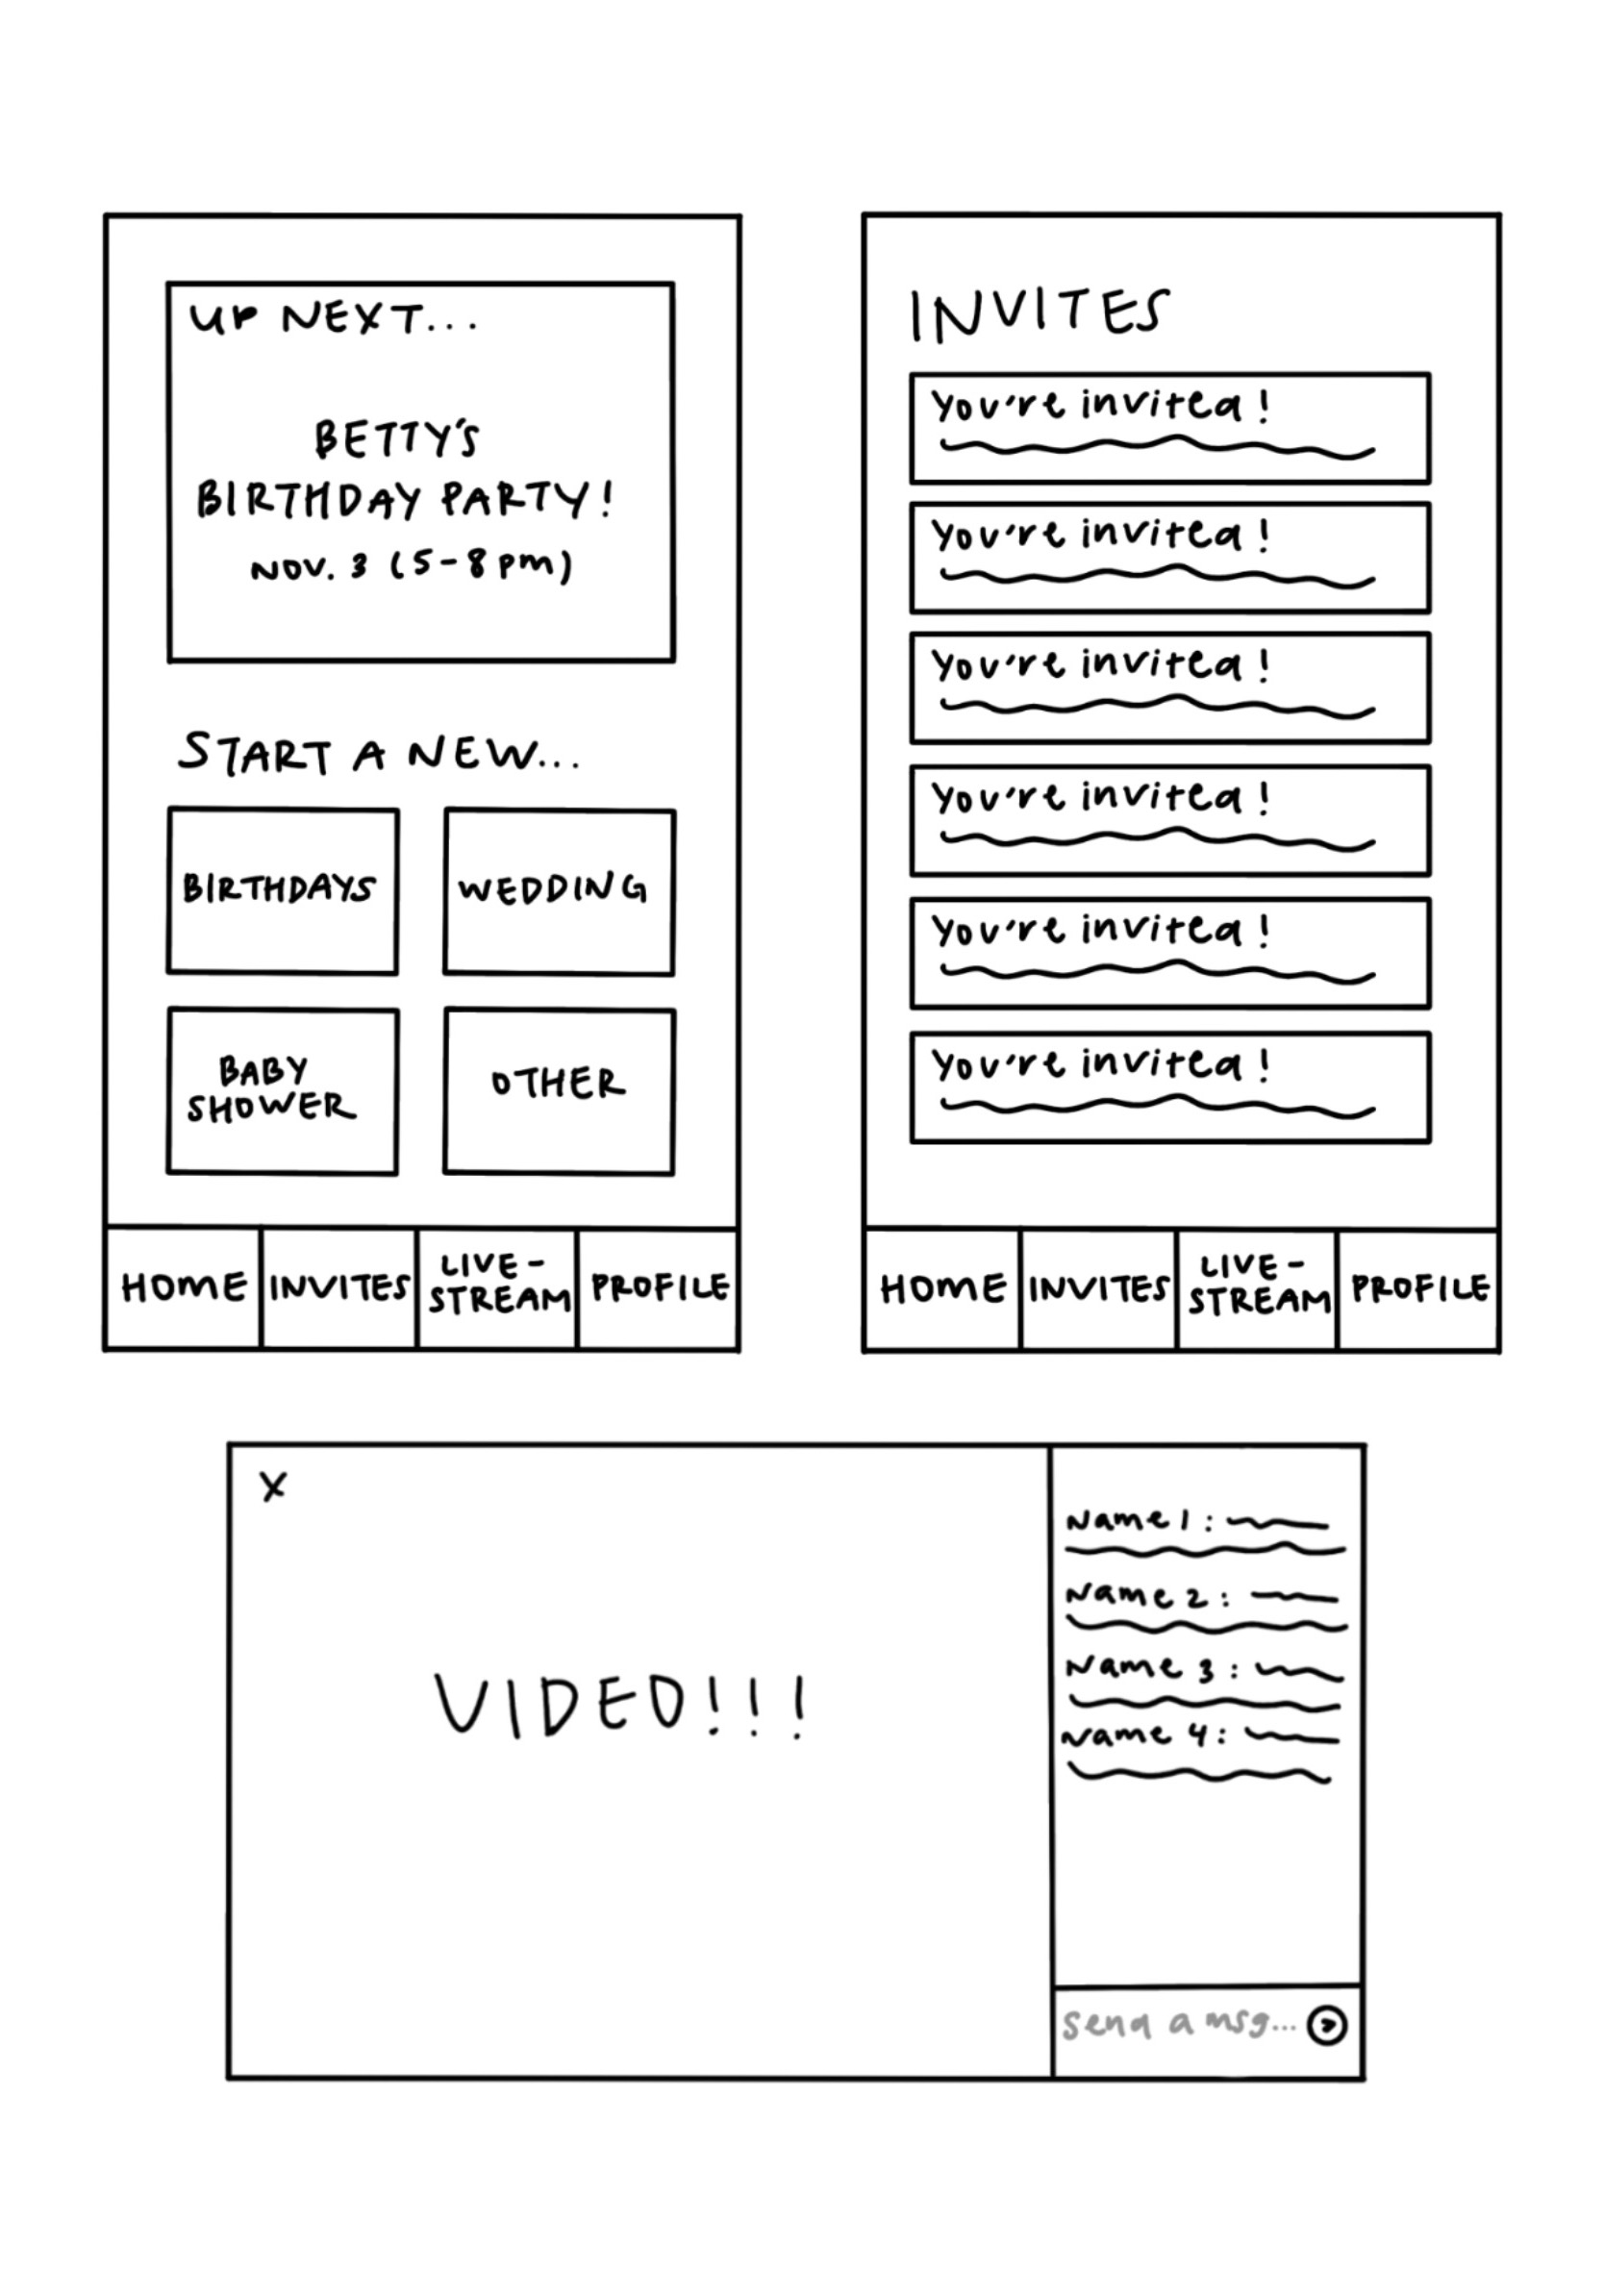 UP NEXT...
BETTY'S
BIRTHDAY PARTY!
NOV. 3 (5-8 pm)
START A NEW...
BIRTHDAYS
WEDDING
BABY
SHOWER
OTHER
HOME
INVITES
LIVE-
STREAM
PROFILE
INVITES
you're invited!
you're invited!
you're invited!
you're invited!
you're invited!
you're invited!
HOME
INVITES
LIVE-
STREAM
PROFILE
X
VIDEO!!!
Name 1:
Name 2:
Name 3:
Name 4:
send a msg...